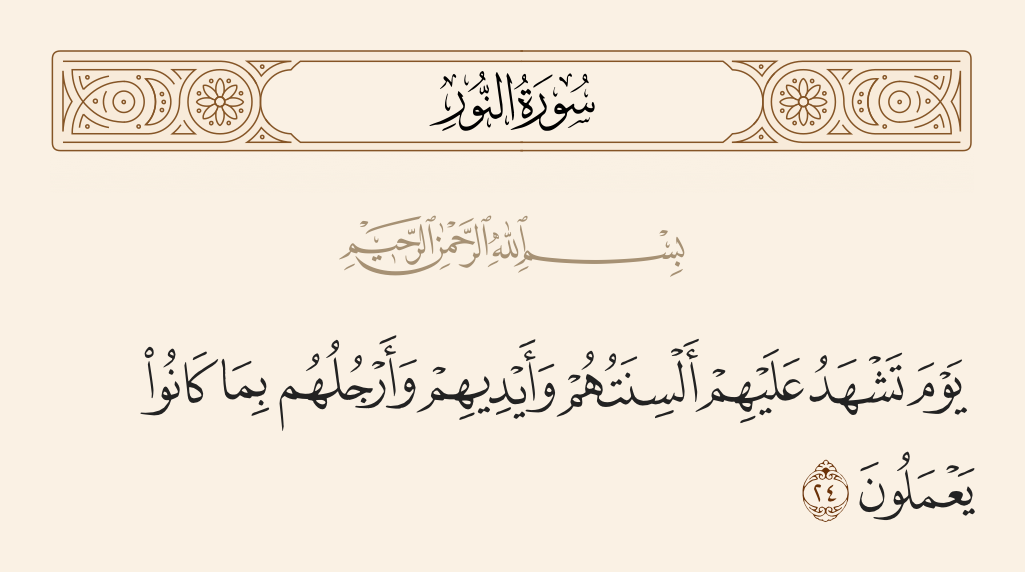 سُورَةُ النُّورِ
بِسْمِ ٱللَّهِ ٱلرَّحْمَٰنِ ٱلرَّحِيمِ
يَوْمَ تَشْهَدُ عَلَيْهِمْ أَلْسِنَتُهُمْ وَأَيْدِيهِمْ وَأَرْجُلُهُم بِمَا كَانُوا۟
يَعْمَلُونَ ٢٤